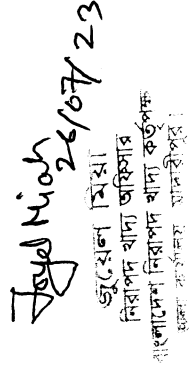 Joyel Miah
26/07/23
জুয়েল মিয়া
নিরাপদ খাদ্য অফিসার
বাংলাদেশ নিরাপদ খাদ্য কর্তৃপক্ষ
জেলা কার্যালয়, মাদারীপুর।